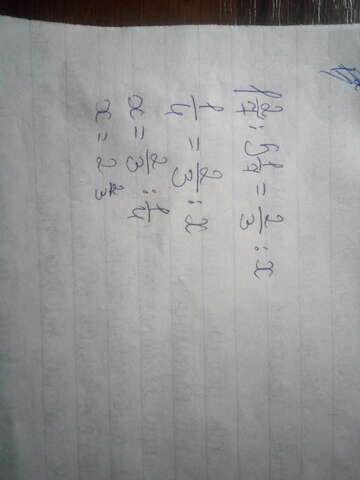 1 2/7 : 5 1/7 = 2/3 : x
1/4 = 2/3 : x
x = 2/3 : 1/4
x = 2 2/3